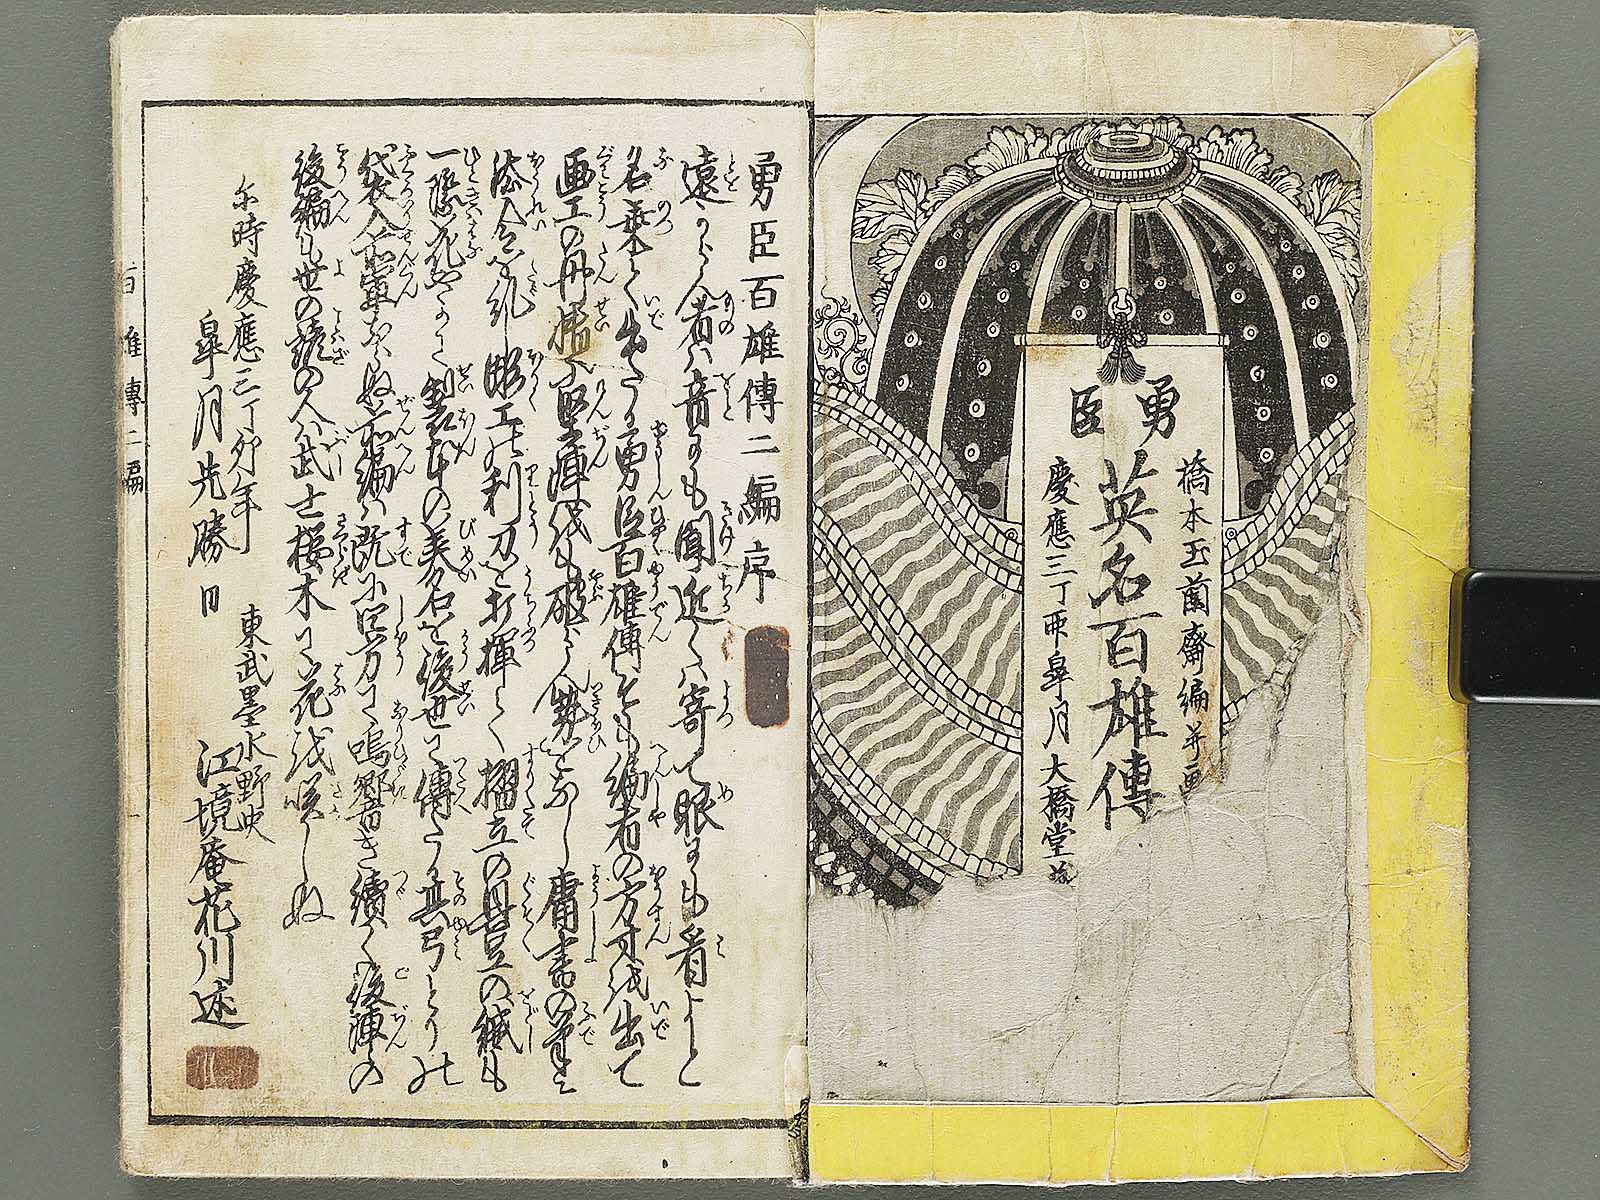 橋本玉蘭齋編并画
勇臣
英名百雄傳
慶應三丁卯皐月 大橋堂
勇臣百雄傳二編序
遠からん者ハ音にも聞近くバ寄て眼にも看よと
名乗て出たる勇臣百雄傳そも編者の方寸を出て
画工の丹精に堅陣をも破らん勢をなし庸書の筆も
法令を乱し彫工の利刀を打揮て摺立の具足の縅も
一際花やかに製本の美名を後世に傳たる其弓とりの
袋入前輩ならぬ前編ハ既に四方に鳴響き續く後陣の
後編も世の諺の人ハ武士桜木に花を咲しぬ
于時慶應三丁卯年
皐月先勝日
東武墨水野史
江境庵花川述
百雄傳二編